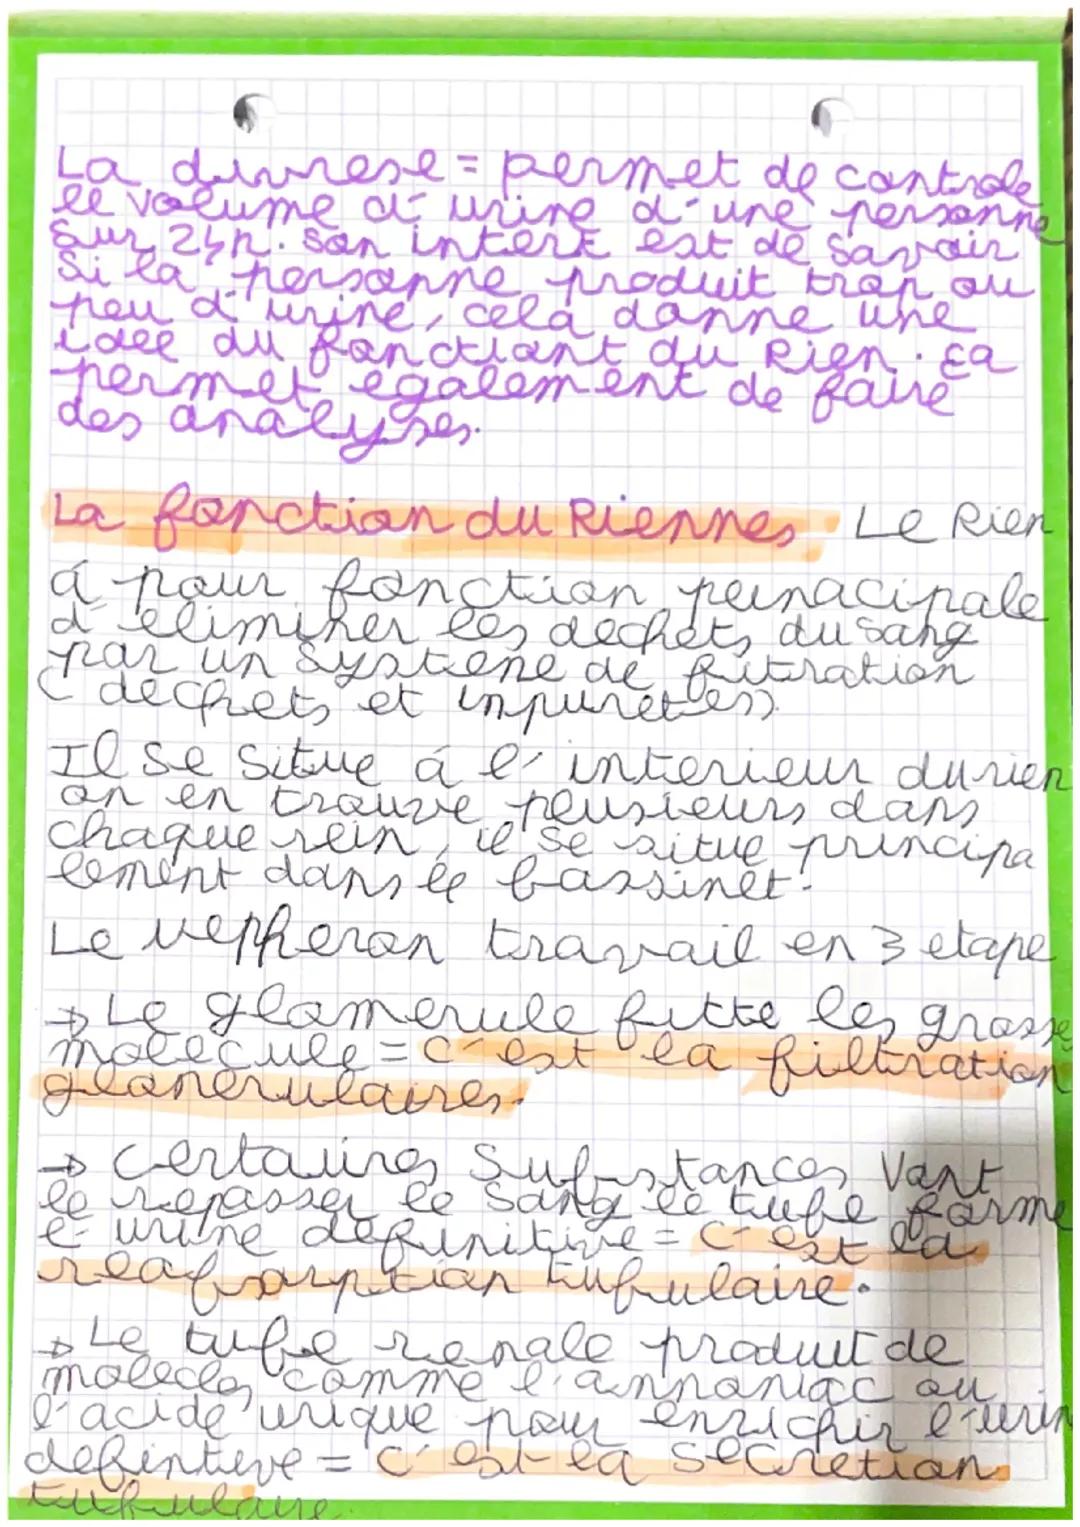 La diurese = permet de controle
le volume d'urine d'une personne
Sur 24h. son intert est de savoir
Si la personne produit trop ou
peu d'urine, cela donne une
idee du fonctiont du Rien. ça
permet egalement de faire
des analyses.
La fonction du Riennes Le Rien
á pour fonction peinacipale
d'eliminer les dechets du sang
par un systene de fitration
( dechets et inpuretes))
Il se situe á l'interieur du rien
on en trouve plusieurs dans
chaque rein, il se situe principa
lement dans le bassinet.
Le nepheron travail en 3 etape
→ Le glomerule fitte les grosse
molecule = c'est la filtration
glonerulaires.
→ Certaires Substances Vont
le repasser le Sang le tube forme
l'urine definitive = c'est la
reabsorption tubulaire.
→ Le tube renale produit de
molecles comme l'annoniac ou
l'acide urique pour enrichir l'urin
defintieve = c'est la secretion
tubulaire.